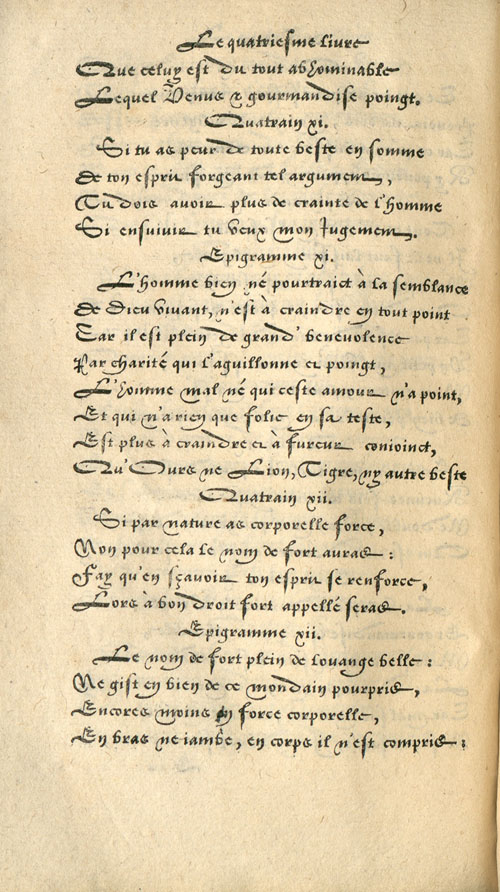 Le quatriesme livre
Que celuy est du tout abhominable
Lequel Venus & gourmandise poingt.
Quatrain xi.
Si tu as peur de toute beste en somme
De ton esprit forgeant tel argument,
Tu dois avoir plus de crainte de l'homme
Si ensuivir tu veux mon Jugement.
Epigramme xi.
L'homme bien né pourtraict à la semblance
De Dieu vivant, n'est à craindre en tout point
Car il est plein de grand' benevolence
Par charité qui l'aguillonne et poingt,
L'homme mal né qui ceste amour n'a point,
Et qui n'a rien que folie en sa teste,
Est plus à craindre et à fureur conioinct,
Qu'Ours ne Lion, Tigre, ny autre beste
Quatrain xii.
Si par nature as corporelle force,
Non pour cela le nom de fort auras :
Fay qu'en sçavoir ton esprit se renforce,
Lors à bon droit fort appellé seras.
Epigramme xii.
Le nom de fort plein de louange belle :
Ne gist en bien de ce mondain pourpris,
Encores moins en force corporelle,
En bras ne iambe, en corps il n'est compris :